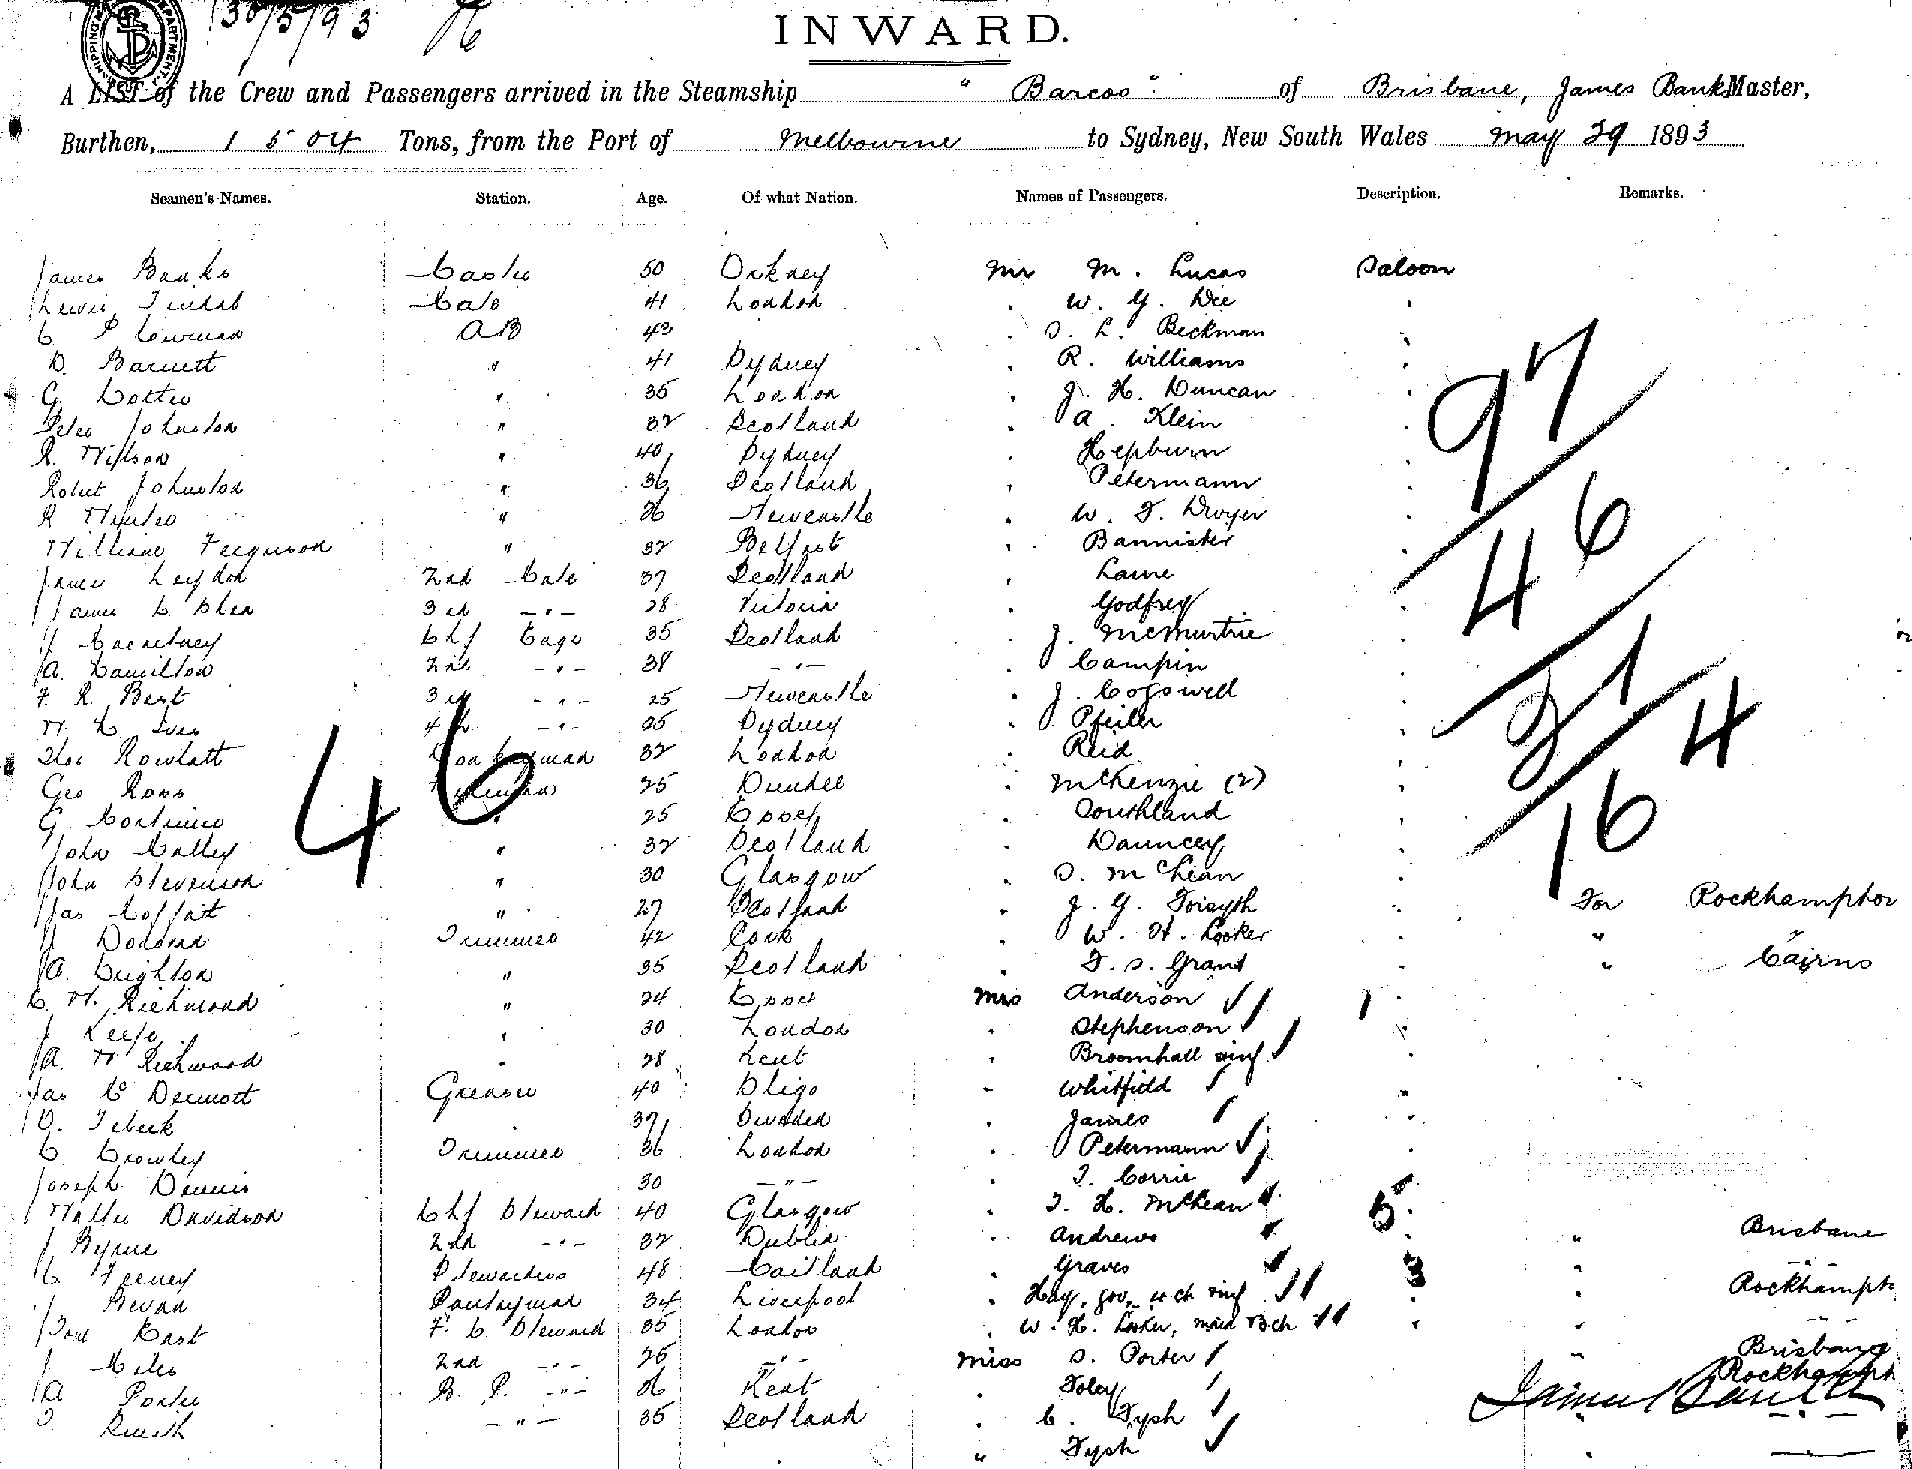 30/5/93
INWARD.
A LIST of the Crew and Passengers arrived in the Steamship "Barcoo" of Brisbane, James Banks Master,
Burthen, 1504 Tons, from the Port of Melbourne to Sydney, New South Wales May 29 1893
Seamen's Names. Station. Age. Of what Nation. Names of Passengers. Description. Remarks.
James Banks Master 50 Orkney Mr M. Lucas Saloon
Lewis Tindal Mate 41 London " W. G. Dee "
AB 43 " S. L. Beckman "
D. Barnett " 41 Sydney " R. Williams "
G " 35 London " J. H. Duncan "
Peter Johnston " 32 Scotland " A. Klein "
R. Wilson " 40 Sydney " Hepburn "
Robert Johnston " 36 Scotland " Petermann "
R " 26 Newcastle " W. F. Dwyer "
William Ferguson " 32 Belfast " Bannister "
James Leydon 2nd Mate 37 Scotland " Laure "
James C Shea 3rd -"- 28 Victoria " Godfrey "
J Macartney Chf Engr 35 Scotland " J. McMurtrie "
A. Hamilton 2nd -"- 38 -"- " Campin "
F. R. Best 3rd -"- 25 Newcastle " J. Cogswell "
W. C. Ives 4th -"- 25 Sydney " Pfeiler "
Thos Rowlatt Donkeyman 32 London " Reid "
Geo Ross Fireman 25 Dundee " McKenzie (2) "
G. Mortimer " 25 Essex " Southland "
John Malley " 32 Scotland " Dauncey "
John Stevenson " 30 Glasgow " S. McLean "
Jas Moffatt " 27 Scotland " J. G. Forsyth " For Rockhampton
J Donovan Trimmer 42 Cork " W. H. Looker " "
A. Crighton " 35 Scotland " F. S. Grant " " Cairns
C. W. Richmond " 24 Essex Mrs Anderson 1
J Keefe " 30 London " Stephenson "
A. W Richwood " 28 Kent " Broomhall & inf "
Jas McDermott Greaser 40 Sligo " Whitfield "
O. Tebeck 39 Sweden " James "
C. Crowley Trimmer 36 London " Petermann "
Joseph Dennis 30 -"- " T. Corrie "
Walter Davidson Chf Steward 40 Glasgow " T. H. McLean 5 "
J Byrne 2nd -"- 32 Dublin " Andrews " " Brisbane
C Feeney Stewardess 48 Maitland " Graves 3 "
J Bevan Pantryman 34 Liverpool " Hay, gov, ch inf " " Rockhampt
Tom East F. C. Steward 35 London " W. H. Looker, maid & ch " "
J Miles 2nd -"- 25 -"- Miss S. Porter " Brisbane
A Porter B. P. -"- 26 Kent " Foley Rockhampt
-"- 35 Scotland " C. Tysh
" Tysh
97
46
51
4
16
46
James Banks